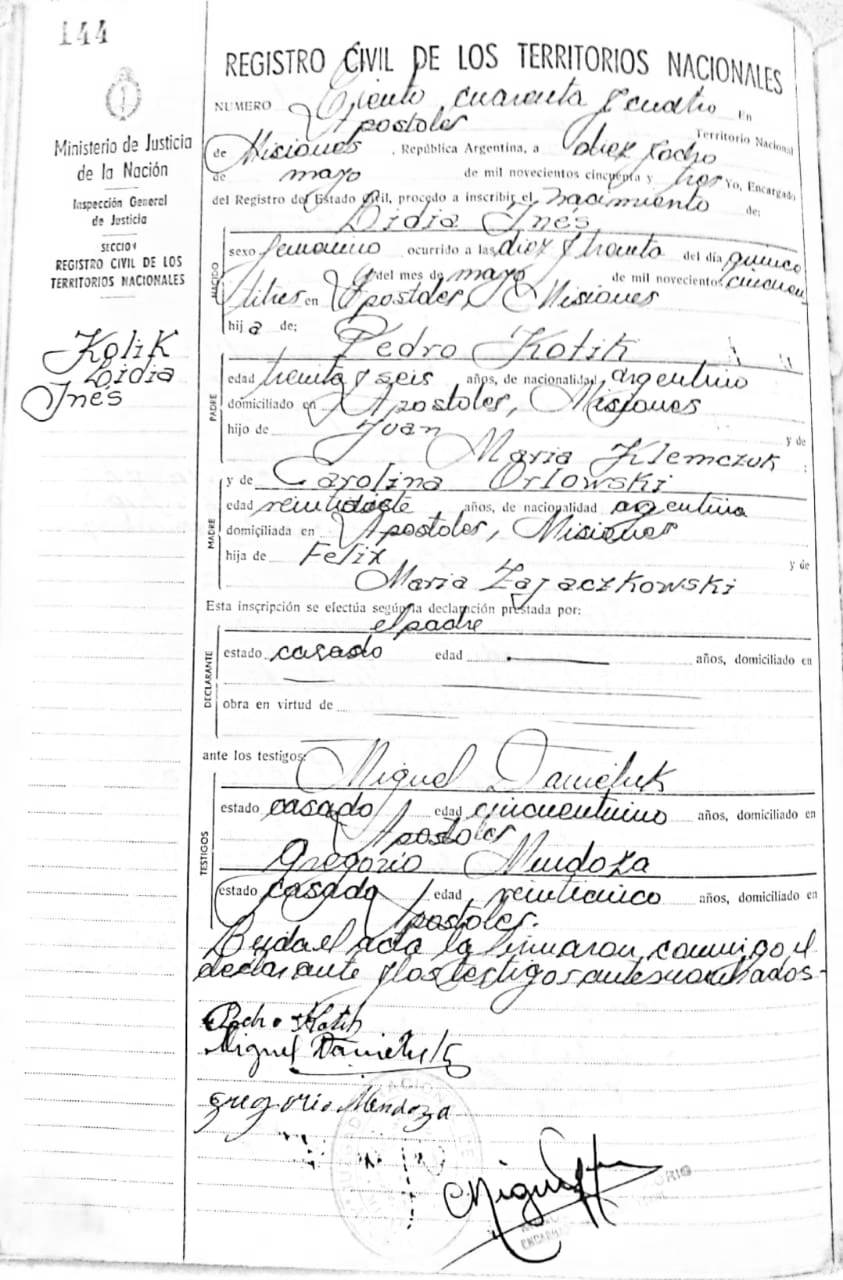 144
Ministerio de Justicia
de la Nación
Inspección General
de Justicia
SECCION
REGISTRO CIVIL DE LOS
TERRITORIOS NACIONALES
Kotik
Lidia
Inés
REGISTRO CIVIL DE LOS TERRITORIOS NACIONALES
NUMERO Ciento cuarenta y cuatro En
Apostoles Territorio Nacional
de Misiones, República Argentina, a diez y ocho
de mayo de mil novecientos cincuenta y tres Yo, Encargado
del Registro del Estado Civil, procedo a inscribir el nacimiento de:
Lidia Inés
NACIDO
sexo femenino ocurrido a las diez y treinta del día quince
del mes de mayo de mil novecientos cincuen
ta y tres en Apostoles, Misiones
hija de:
Pedro Kotik
PADRE
edad treinta y seis años, de nacionalidad argentino
domiciliado en Apostoles, Misiones
hijo de Juan y de
Maria Klemczuk ;
y de Carolina Orlowski
MADRE
edad veintisiete años, de nacionalidad argentina
domiciliada en Apostoles, Misiones
hija de Felix y de
Maria Zajaczkowski
Esta inscripción se efectúa según la declaración prestada por:
el padre
DECLARANTE
estado casado edad años, domiciliado en
obra en virtud de
ante los testigos:
Miguel Danieluk
TESTIGOS
estado casado edad cincuentiuno años, domiciliado en
Apostoles
Gregorio Mendoza
estado casado edad veinticinco años, domiciliado en
Apostoles.
Leida el acta la firmaron conmigo el
declarante y los testigos antes nombrados-
Pedro Kotik
Miguel Danieluk
Gregorio Mendoza